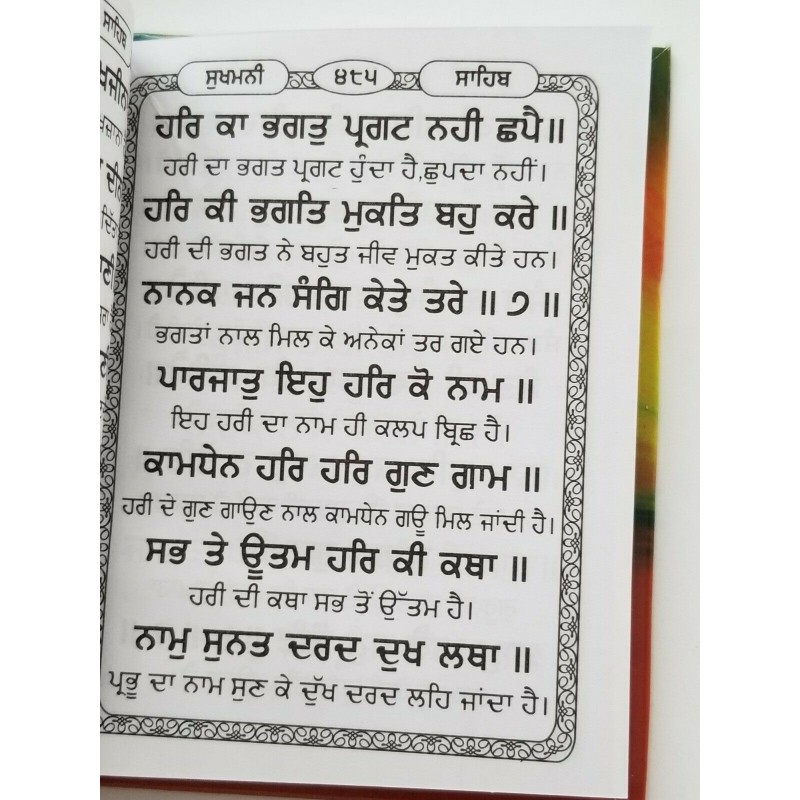 ਸੁਖਮਨੀ ੪੮੫ ਸਾਹਿਬ
ਹਰਿ ਕਾ ਭਗਤੁ ਪ੍ਰਗਟ ਨਹੀ ਛਪੈ॥
ਹਰੀ ਦਾ ਭਗਤ ਪ੍ਰਗਟ ਹੁੰਦਾ ਹੈ,ਛੁਪਦਾ ਨਹੀਂ।
ਹਰਿ ਕੀ ਭਗਤਿ ਮੁਕਤਿ ਬਹੁ ਕਰੇ ॥
ਹਰੀ ਦੀ ਭਗਤ ਨੇ ਬਹੁਤ ਜੀਵ ਮੁਕਤ ਕੀਤੇ ਹਨ।
ਨਾਨਕ ਜਨ ਸੰਗਿ ਕੇਤੇ ਤਰੇ ॥ ੭ ॥
ਭਗਤਾਂ ਨਾਲ ਮਿਲ ਕੇ ਅਨੇਕਾਂ ਤਰ ਗਏ ਹਨ।
ਪਾਰਜਾਤੁ ਇਹੁ ਹਰਿ ਕੋ ਨਾਮ ॥
ਇਹ ਹਰੀ ਦਾ ਨਾਮ ਹੀ ਕਲਪ ਬ੍ਰਿਛ ਹੈ।
ਕਾਮਧੇਨ ਹਰਿ ਹਰਿ ਗੁਣ ਗਾਮ ॥
ਹਰੀ ਦੇ ਗੁਣ ਗਾਉਣ ਨਾਲ ਕਾਮਧੇਨ ਗਊ ਮਿਲ ਜਾਂਦੀ ਹੈ।
ਸਭ ਤੇ ਊਤਮ ਹਰਿ ਕੀ ਕਥਾ ॥
ਹਰੀ ਦੀ ਕਥਾ ਸਭ ਤੋਂ ਉੱਤਮ ਹੈ।
ਨਾਮੁ ਸੁਨਤ ਦਰਦ ਦੁਖ ਲਥਾ ॥
ਪ੍ਰਭੂ ਦਾ ਨਾਮ ਸੁਣ ਕੇ ਦੁੱਖ ਦਰਦ ਲਹਿ ਜਾਂਦਾ ਹੈ।